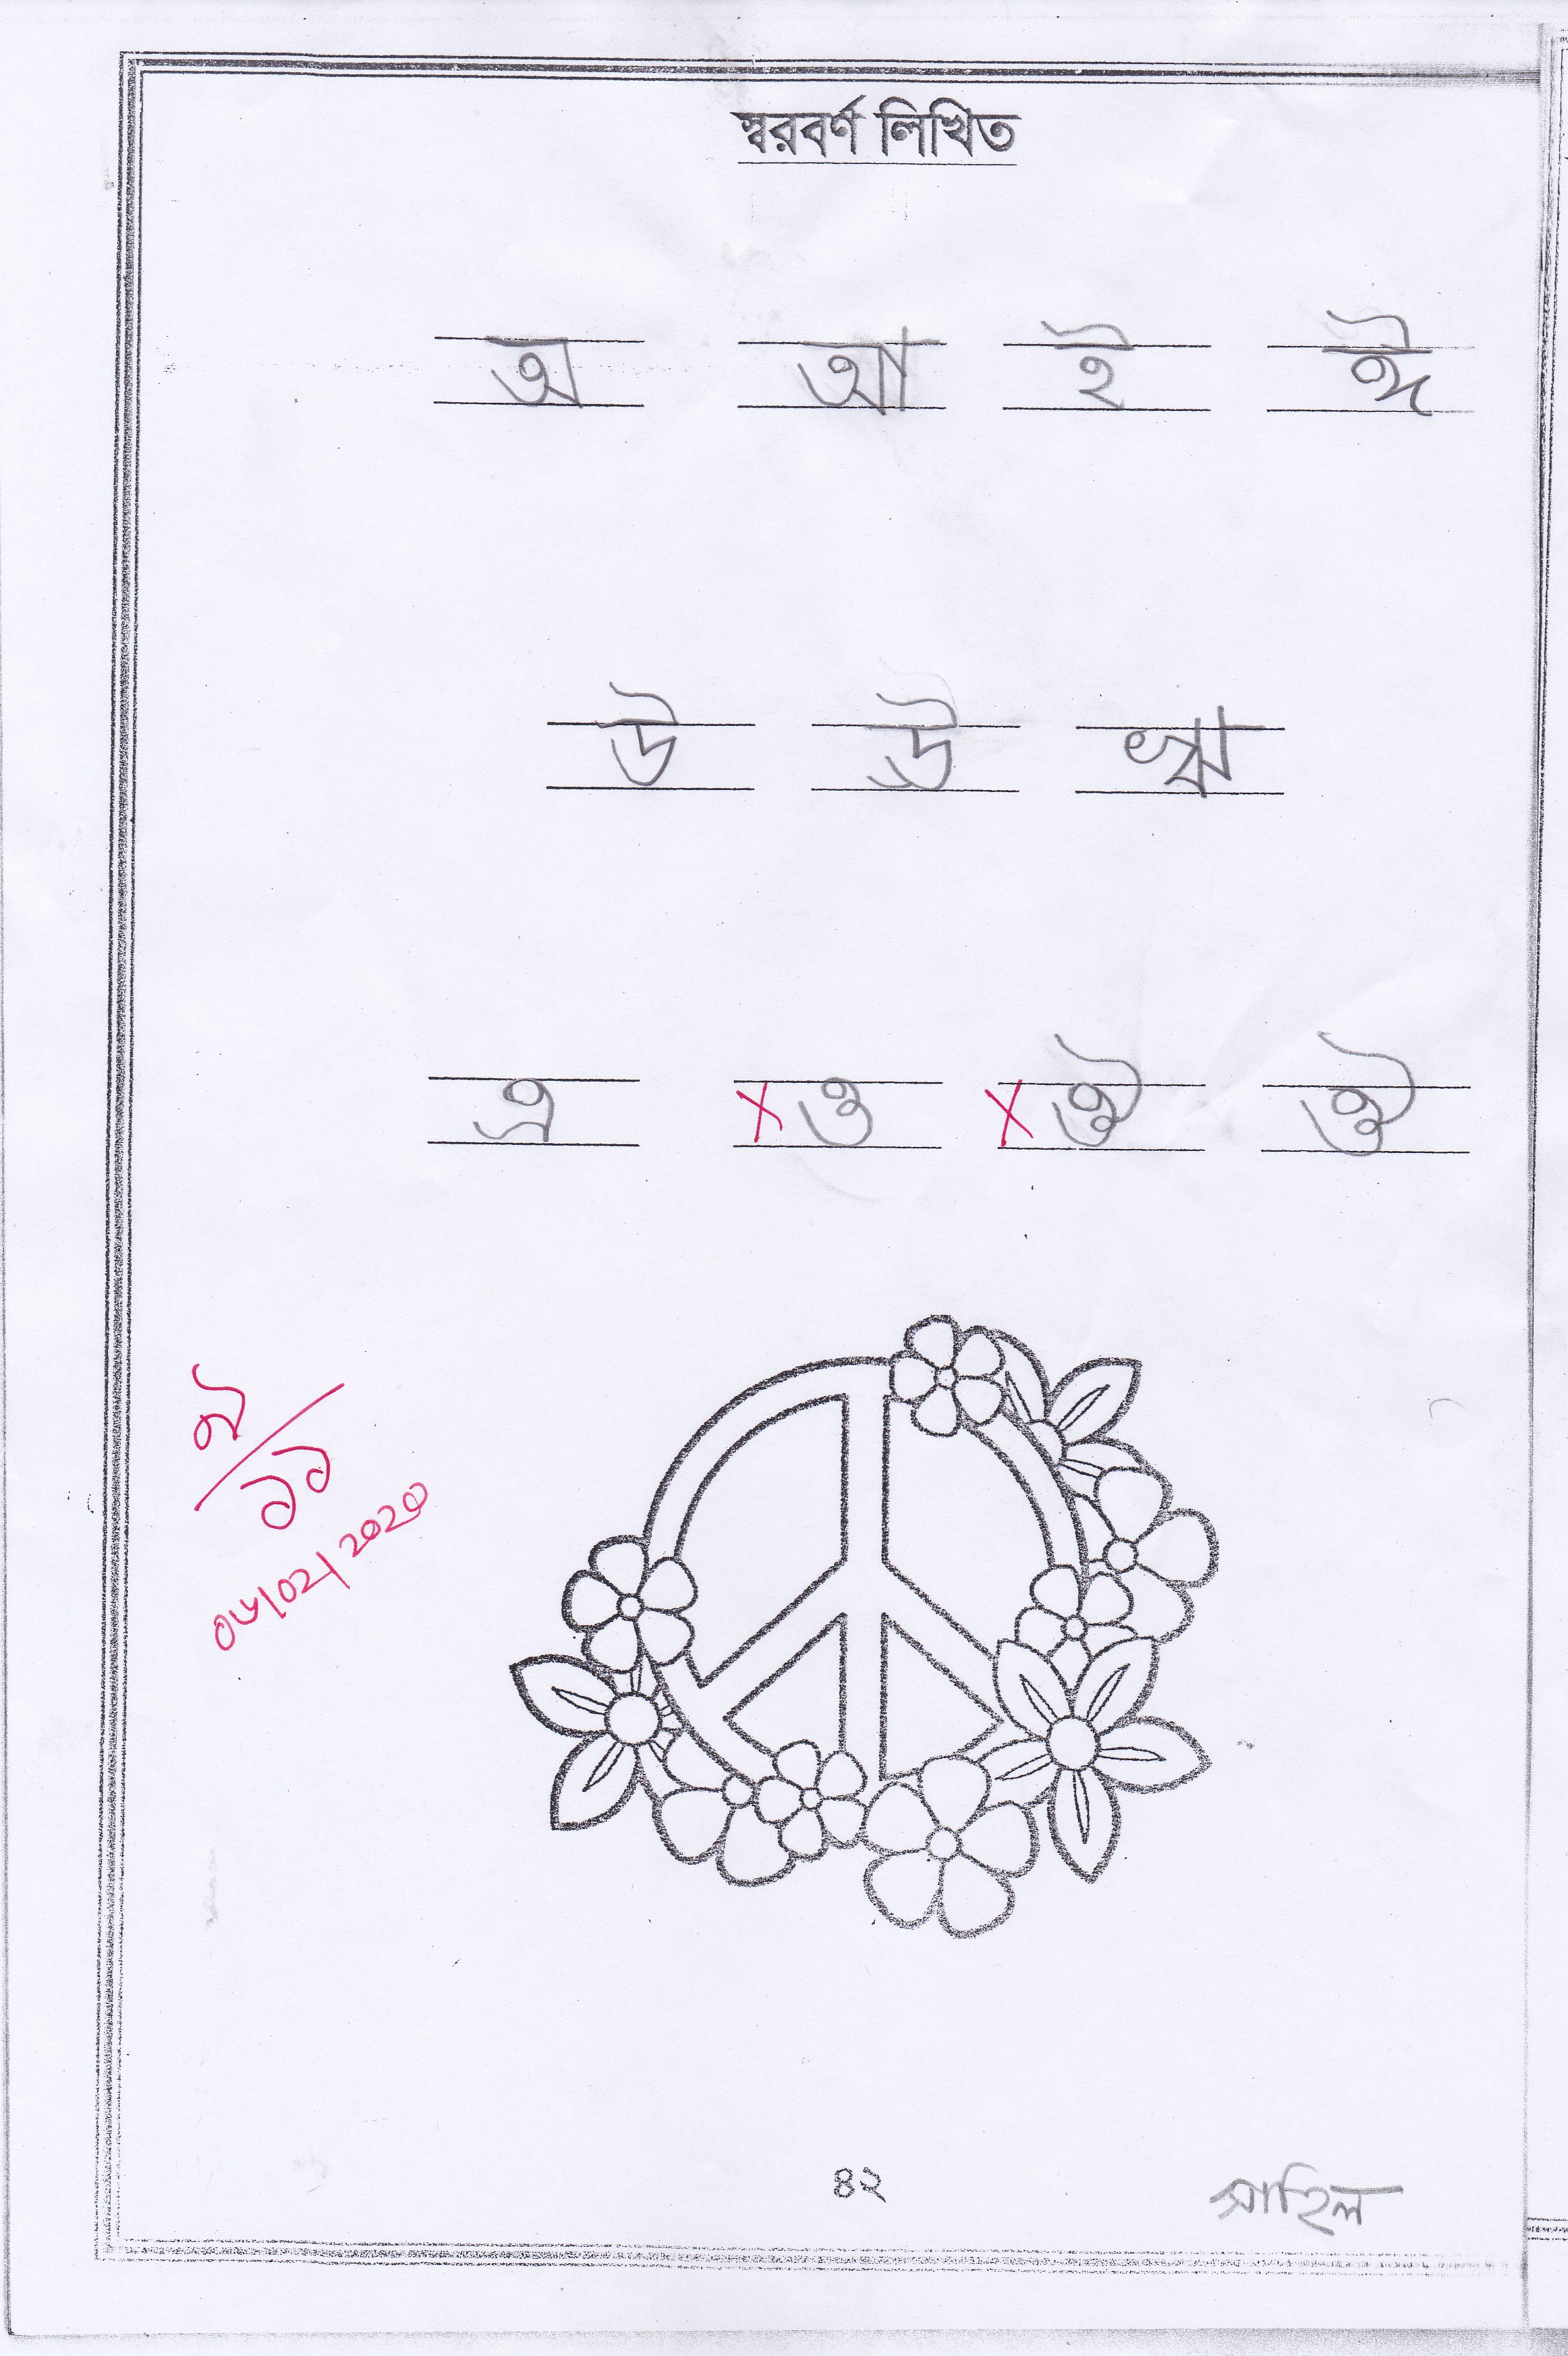 স্বরবর্ণ লিখিত
অ আ ই ঈ
উ ঊ ঋ
এ X ও X ঔ ঔ
৯/১১
০৬/০২/২০২০
৪২
সাহিল